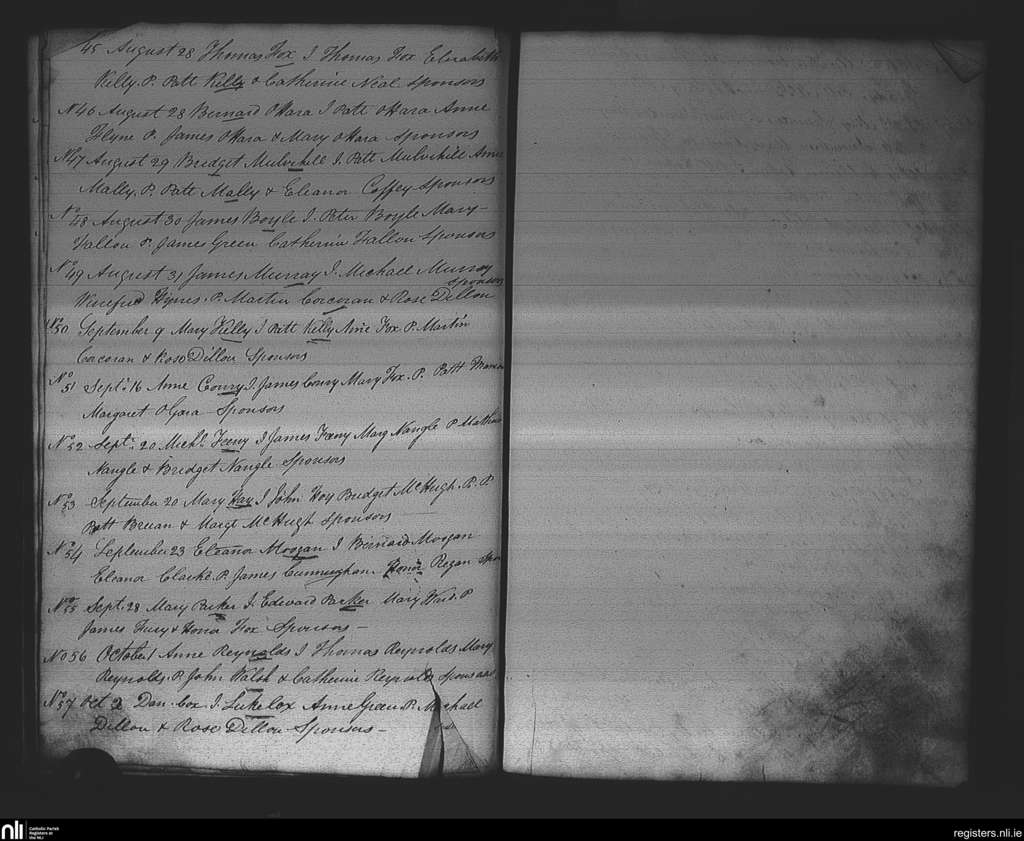 45 August 28 Thomas Fox I Thomas Fox Elizabeth
Kelly. P. Patt Kelly & Catherine Neal Sponsors
No 46 August 28 Bernard OHara I Patt OHara Anne
Flyne P. James OHara & Mary OHara Sponsors
No 47 August 29 Bridget Mulvihill I. Patt Mulvihill Anne
Mally. P. Patt Mally & Eleanor Coffey Sponsors
No 48 August 30 James Boyle I. Peter Boyle Mary
Fallon P. James Green Catherine Fallon Sponsors
No 49 August 31 James Murray I. Michael Murray
Sponsors
Winefred Hynes. P. Martin Corcoran & Rose Dillon
No 50 September 9 Mary Kelly I Patt Kelly Anne Fox P. Martin
Corcoran & Rose Dillon Sponsors
No 51 Septr. 16 Anne Conry I. James Conry Mary Fox. P. Patt
Margaret OGara Sponsors
No 52 Septr. 20 Michl. Feeny I James Feeny Mary Nangle P
Nangle & Bridget Nangle Sponsors
No 53 September 20 Mary Hoy I John Hoy Bridget McHugh. P. P
Patt Bruan & Margt McHugh Sponsors
No 54 September 23 Eleanor Morgan I Bernard Morgan
Eleanor Clarke. P. James Cunningham. Honor Regan
No 55 Sept. 28 Mary Parker I. Edward Parker Mary Ward. P
James Fury & Honor Fox Sponsors
No 56 October 1 Anne Reynolds I Thomas Reynolds Mary
Reynolds. P. John Walsh & Catherine Reynolds Sponsors
No 57 Oct 2 Dan. Cox I. Luke Cox Anne Green P. Michael
Dillon & Rose Dillon Sponsors
nli
Catholic Parish
Registers at
the NLI
registers.nli.ie